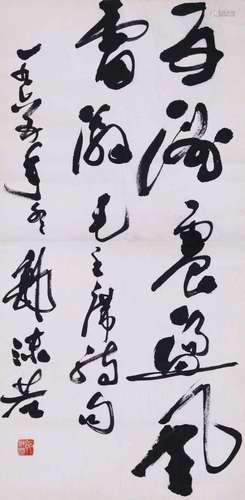 五洲震盪風
雷激 毛主席詩句
一九六五年冬 郭沫若